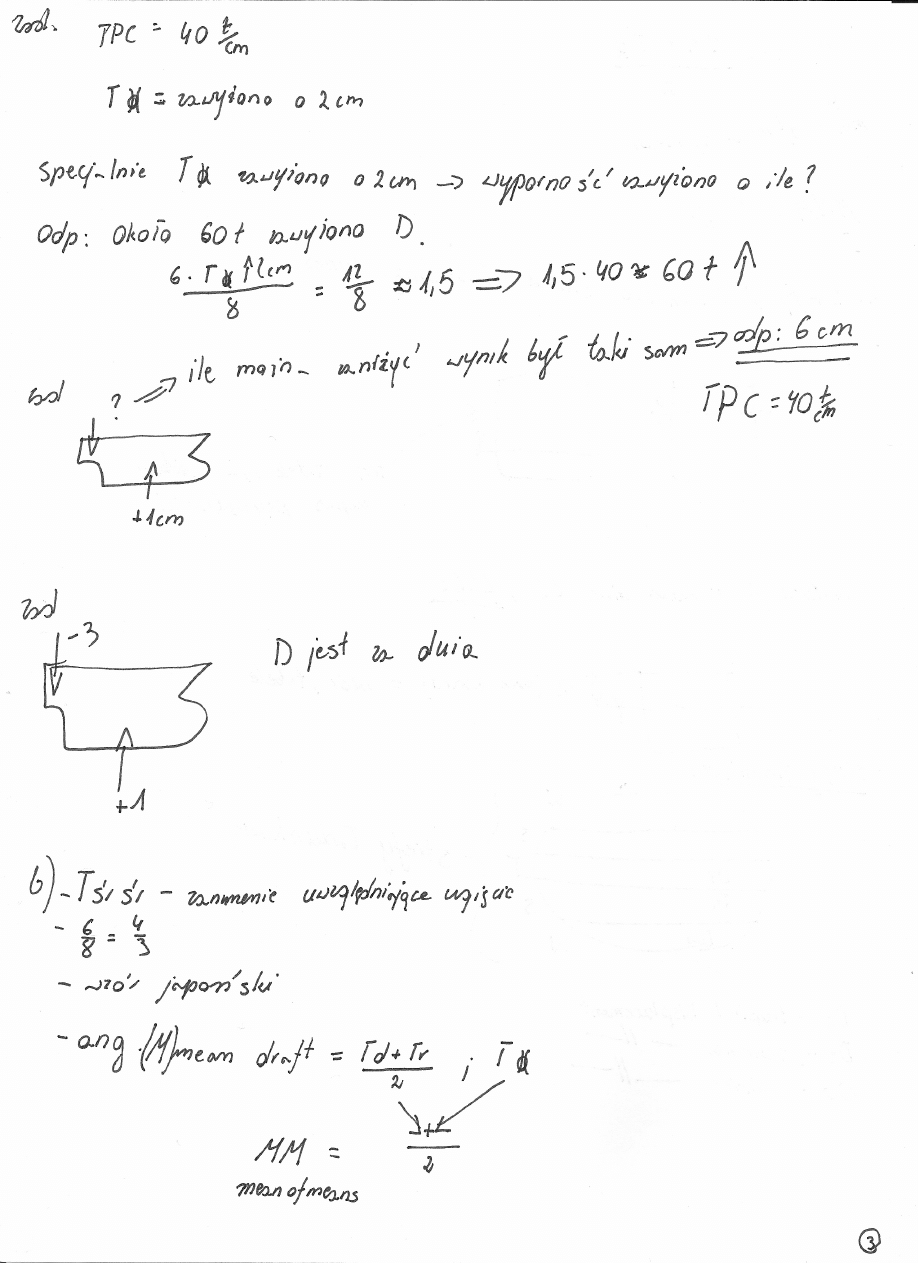 zad. TPC = 40 t/cm
T⦻ = zawyżono o 2 cm
Specjalnie T⦻ zawyżono o 2 cm → wyporność zawyżono o ile?
Odp: Około 60 t zawyżono D.
6 · T⦻ ↑ 2cm / 8 = 12/8 ≈ 1,5 => 1,5 · 40 ≈ 60 t ↑
zad ? => ile można zaniżyć wynik był taki sam => odp: 6 cm
TPC = 40 t/cm
+1cm
zad
-3
D jest za duża
+1
6) - Tśr śr - zanurzenie uwzględniające ugięcie
- 6/8 = 4/3
- wzór japoński
- ang. (M)mean draft = Td + Tr / 2 ; T⦻
MM = + / 2
mean of means
3